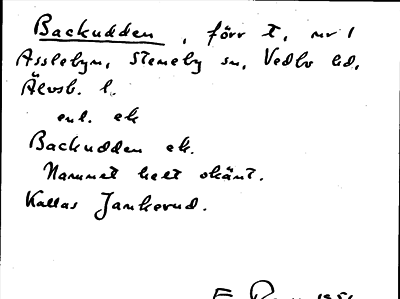 Backudden, förr t. nr 1
Asslebyn, Steneby sn, Vedbo hd,
Älvsb. l.
enl. ek
Backudden ek.
Namnet helt okänt.
Kallas Jankerud.